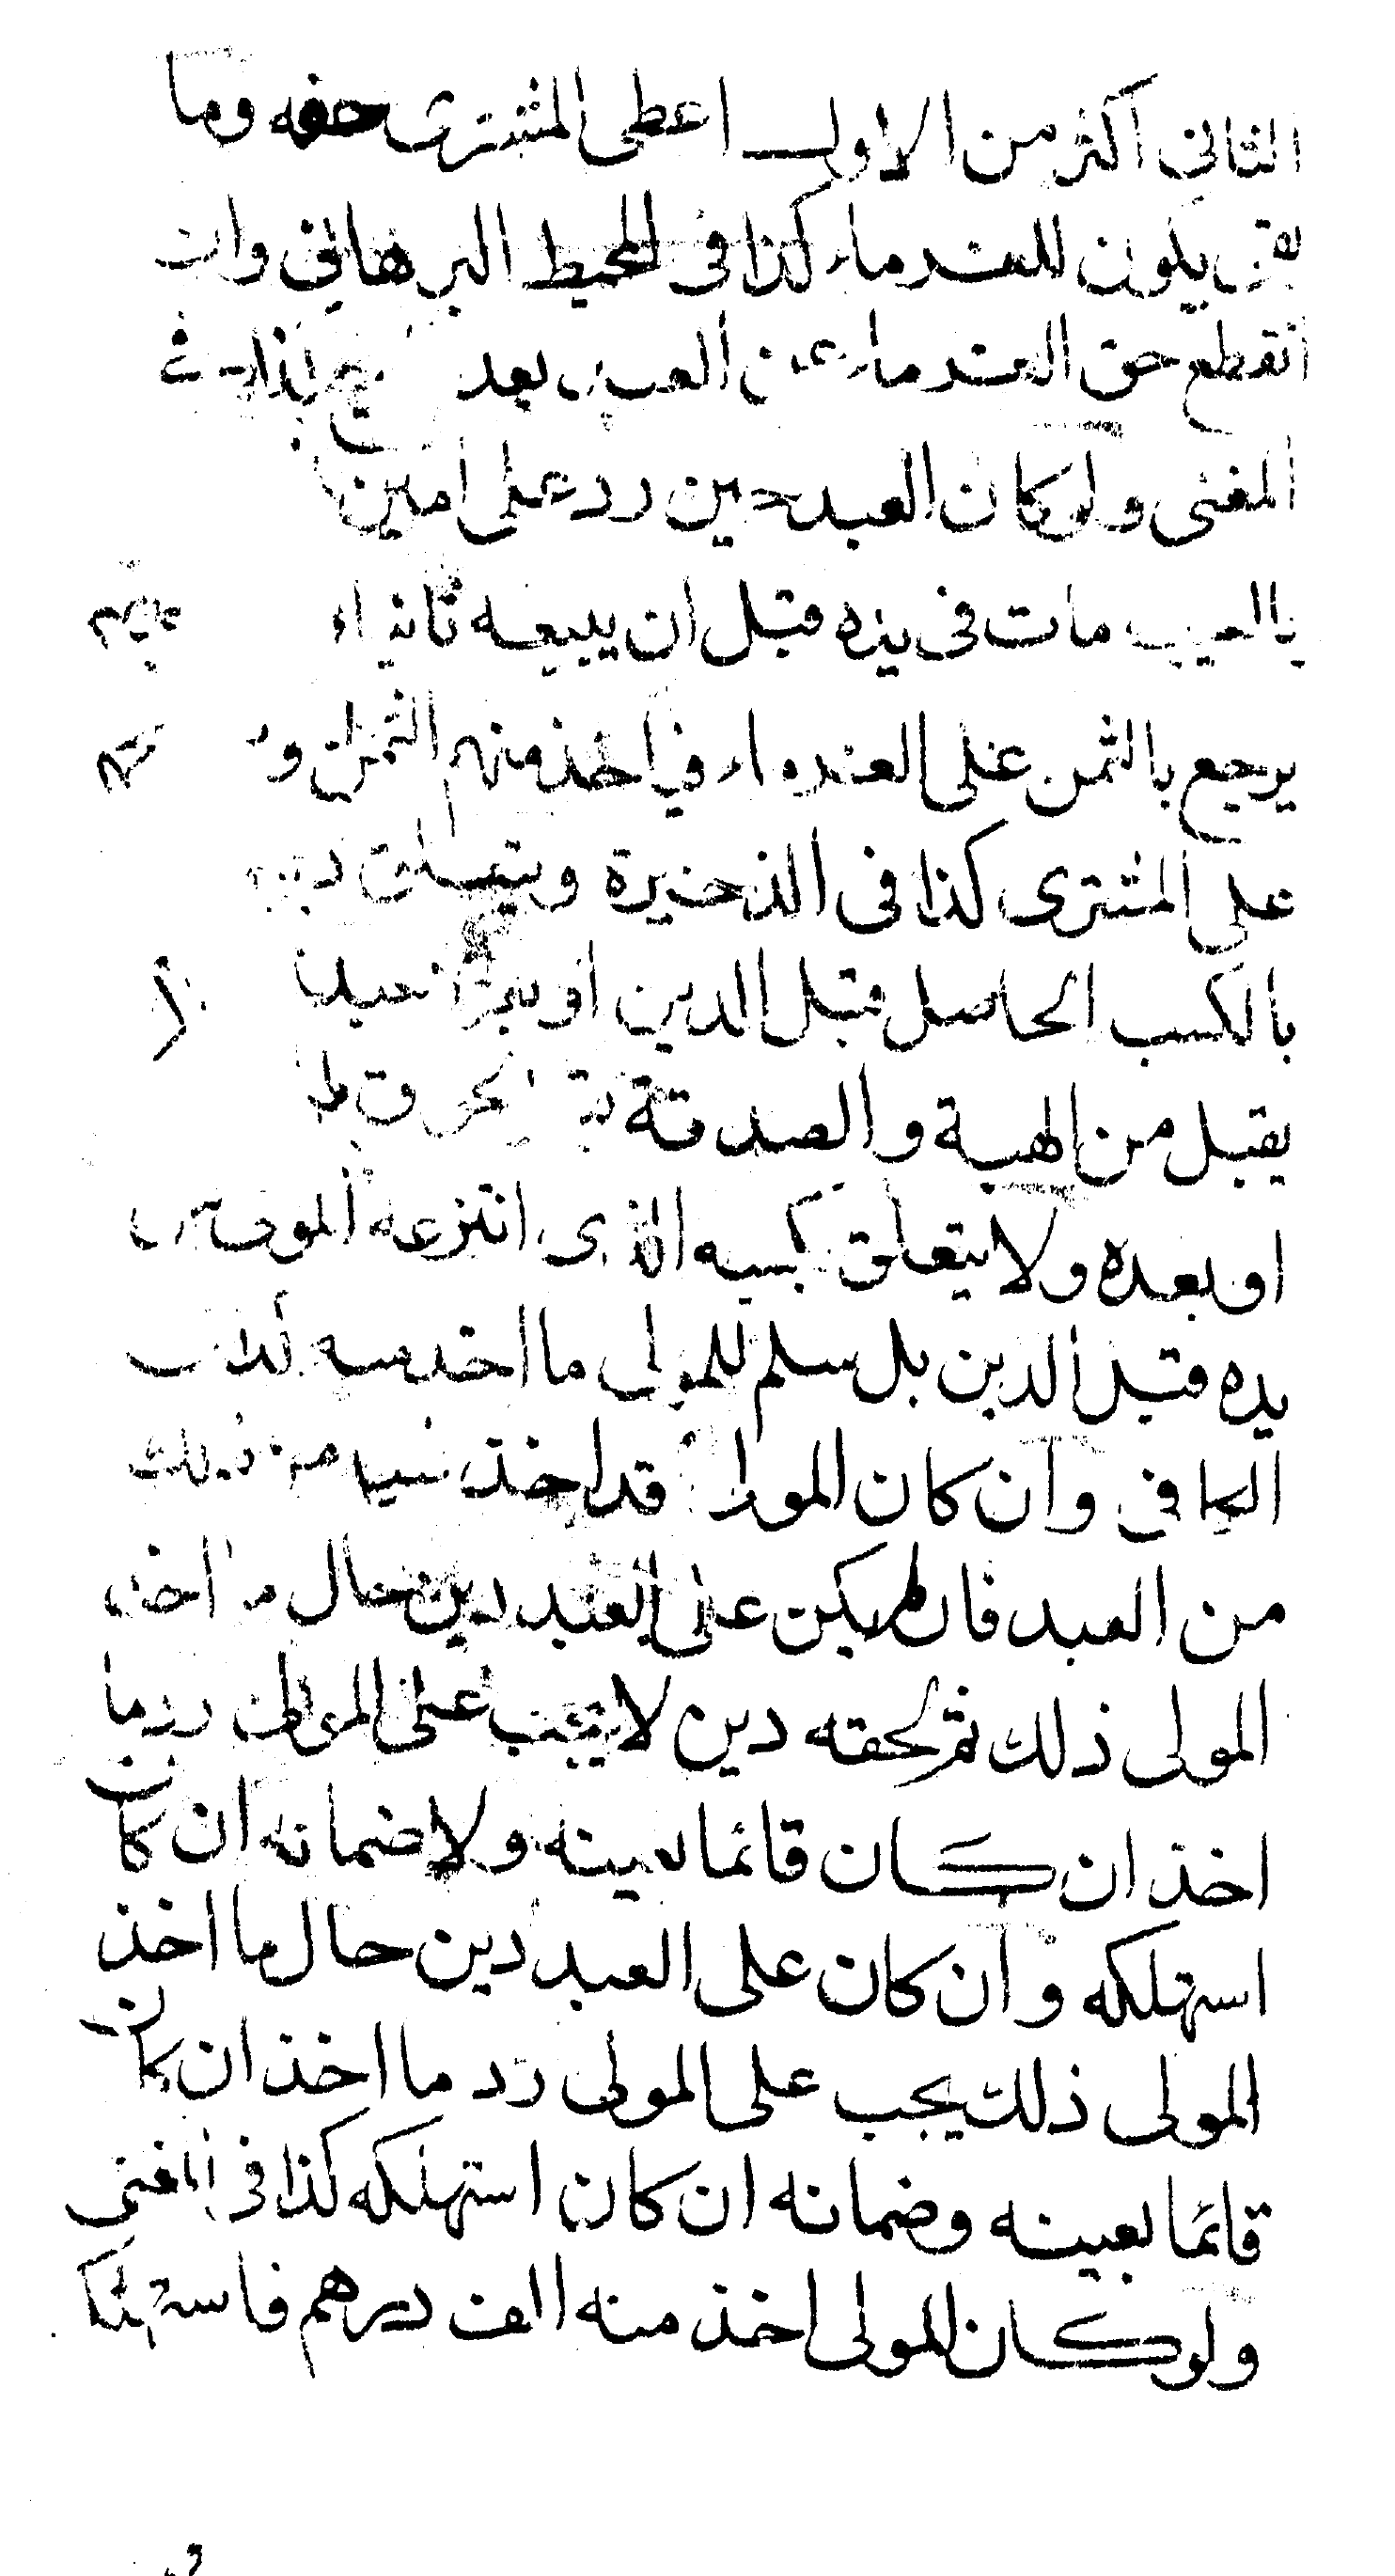 الثاني اكثر من الاول اعطى المشترى حقه وما
بقى يكون للغرماء كذا فى المحيط البرهاني وان
انقطع حق الغرماء عن العبد بعد
المغنى ولو كان العبد حين رد على امين
بالعيب مات فى يده قبل ان يبيعه ثانيا
يرجع بالثمن على الغرماء فياخذ منهم الثمن و
على المشترى كذا فى الذخيرة ويتعلق دينه
بالكسب الحاصل قبل الدين او بعده
يقبل من الهبة والصدقة
او بعده ولا يتعلق بكسبه الذى انتزعه المولى من
يده قبل الدين بل سلم للمولى ما اخذ منه كذا فى
الكافى وان كان المولى قد اخذ شيئا من ذلك
من العبد فان لم يكن على العبد دين حال ما اخذ
المولى ذلك ثم لحقه دين لا يجب على المولى رد ما
اخذ ان كان قائما بعينه ولا ضمانه ان كان
استهلكه وان كان على العبد دين حال ما اخذ
المولى ذلك يجب على المولى رد ما اخذ ان كان
قائما بعينه وضمانه ان كان استهلكه كذا فى المغنى
ولو كان المولى اخذ منه الف درهم فاستهلك